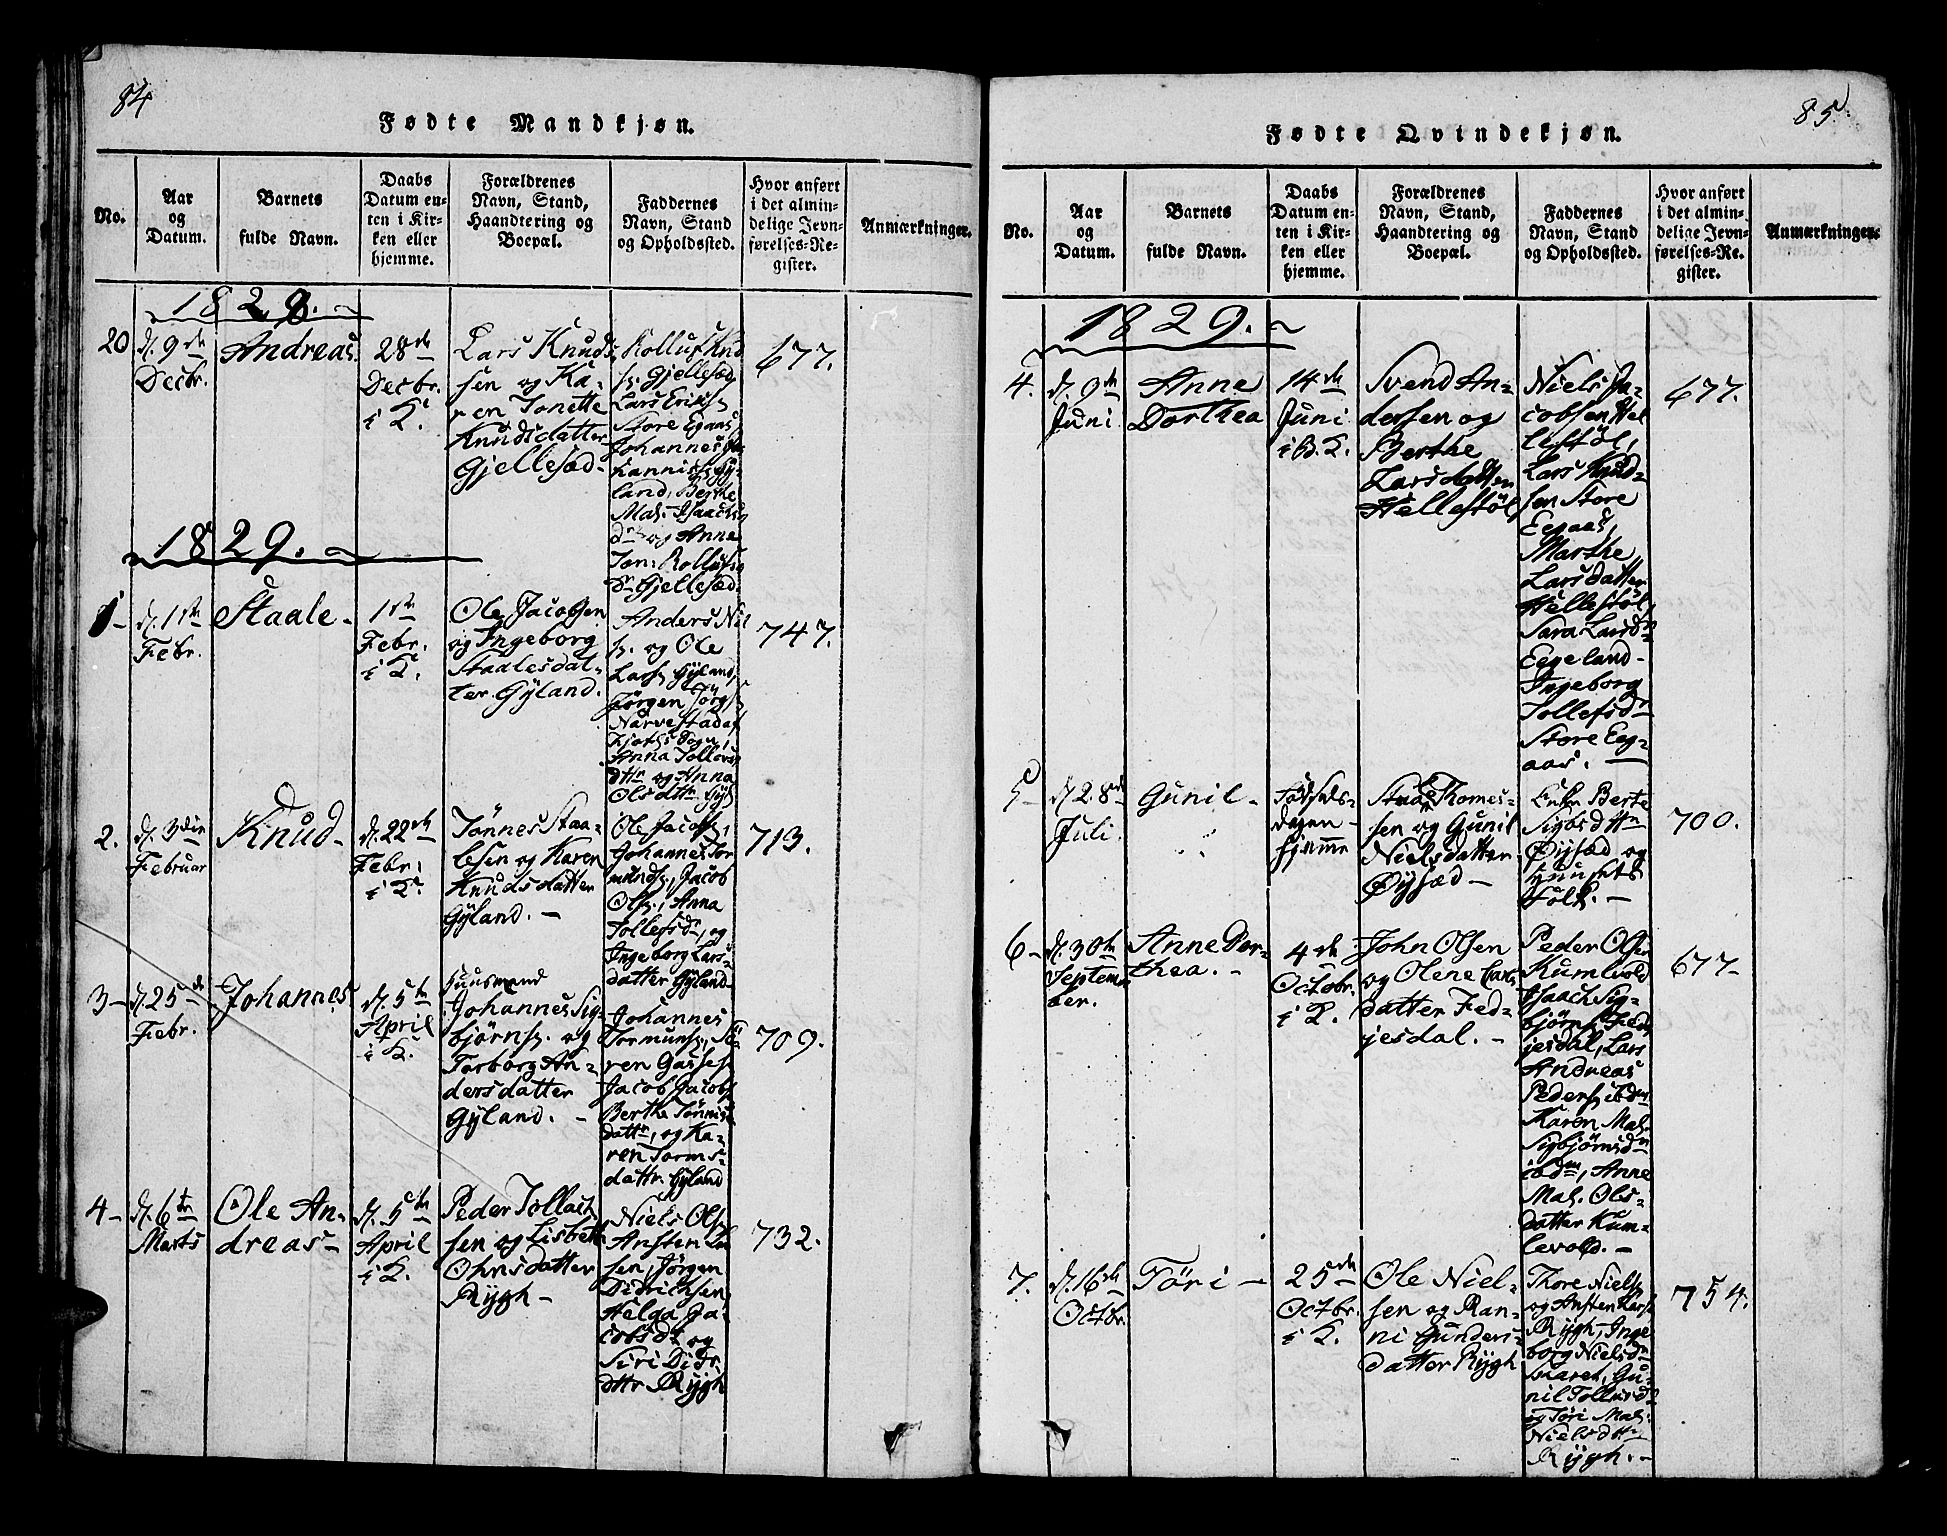 84
Fødte Mandkjøn.
No.
Aar
og
Datum.
Barnets
fulde Navn.
Daabs
Datum en-
ten i Kir-
ken eller
hjemme.
Forældrenes
Navn, Stand,
Haandtering og
Boepæl.
Faddernes
Navn, Stand
og Opholdssted.
Hvor anført
i det almin-
delige Jevn-
førelses-Re-
gister.
Anmærkninger.
1828.
20
d. 9de
Decbr.
Andreas.
28de
Decbr.
i K.
Lars Knud-
sen og Ka-
ren Tonette
Knudsdatter
Gjellesæd-
Rolluf Knud
s. Gjellesæd
Lars Eriks.
Store Egaas,
Johannes
land, Berthe
Mal. Isaachs
dr og Anne
Ton. Rollufs
dr Gjellesæd.
677.
1829.
1-
d. 1ste
Febr.
Staale-
1ste
Febr.
i K.
Ole Jacobsen
og Ingeborg
Staalesdat-
ter Gyland.
Anders Niel
s. og Ole
Lars. Gyland,
Jørgen Jørg.
Narvestad af
Anna Tollevs
dttr og Anna
Olsdttr Gyl.
747.
2.
d. 3die
Februar
Knud-
d. 22de
Febr.
i K.
Tönnes Staa-
lesen og Karen
Knudsdatter
Gyland. -
Ole Jacobs.,
Johannes Tor
munds., Jacob
Ols., Anna
Tollefsdr, og
Ingeborg Lars-
datter Gyland-
713.
3-
d. 25de
Febr.
Johannes
d. 5te
April
i K.
Huusmand
Johannes Sig-
bjørns. og
Torborg An-
dersdatter
Gyland. -
Johannes
Tormuns., Sö
ren Gasses.
Jacob Jacobs.
Berthe Tönnis
dattr, og Ka-
ren Torms-
dattr Gyland
709.
4-
d. 6te
Marts
Ole An-
dreas-
d. 5te
April
i K.
Peder Tollach
sen og Lisbeth
Ohnsdatter
Rygh-
Niels Ols.
Ansten La
sen, Jørgen
Didrichsen
Helga Ja-
cobsdr og
Siri Didr.
dttr Rygh
732.
85.
Fødte Qvindekjøn.
No.
Aar
og
Datum.
Barnets
fulde Navn.
Daabs
Datum en-
ten i Kir-
ken eller
hjemme.
Forældrenes
Navn, Stand,
Haandtering og
Boepæl.
Faddernes
Navn, Stand
og Opholdssted.
Hvor anført
i det almin-
delige Jevn-
førelses-Re-
gister.
Anmærkninger.
1829.
4.
d. 9de
Juni
Anne
Dorthea
14de
Juni
i B. K.
Svend An-
dersen og
Berthe
Larsdatter
Hellestöl
Niels Ja-
cobsen Hel
lestöl,
Lars Knud-
sen Store
Eegaas,
Marthe
Larsdatter
Hellestöl,
Sara Larsdr
Eegeland-
Ingeborg
Tollefsdr
Store Eeg-
aas. -
677.
5-
d. 28de
Juli.
Gunil-
Fødsels-
dagen
hjemme
Staale Thomes-
sen og Gunil
Nielsdatter
Øysæd-
Enke Berte
Sigbsdttr
Øysæd og
Huusets
Folk. -
700.
6-
d. 30te
Septem
ber.
Anne Dor-
thea. -
4de
Octobr.
i K.
John Olsen
og Olene Lars
datter Fed-
jesdal. -
Peder Olsen
Kumlevold
Isaach Sig-
bjørns. Fed-
jesdal, Lars
Andreas
Peders. ibdm
Karen Mal.
Sigbjørnsdr
ibdm, Anne
Mal. Ols-
datter Kum-
levold. -
677-
7.
d. 16de
Octbr.
Töri-
25de
Octbr.
i K.
Ole Niel-
sen og Ran-
ni Gunders-
datter Rygh
Thore Niels.
og Ansten Lars.
Rygh, Inge
borg Nielsdr
Svaret, Gu-
nil Tollevsdr
og Töri Mal.
Nielsdttr
Rygh. -
754.